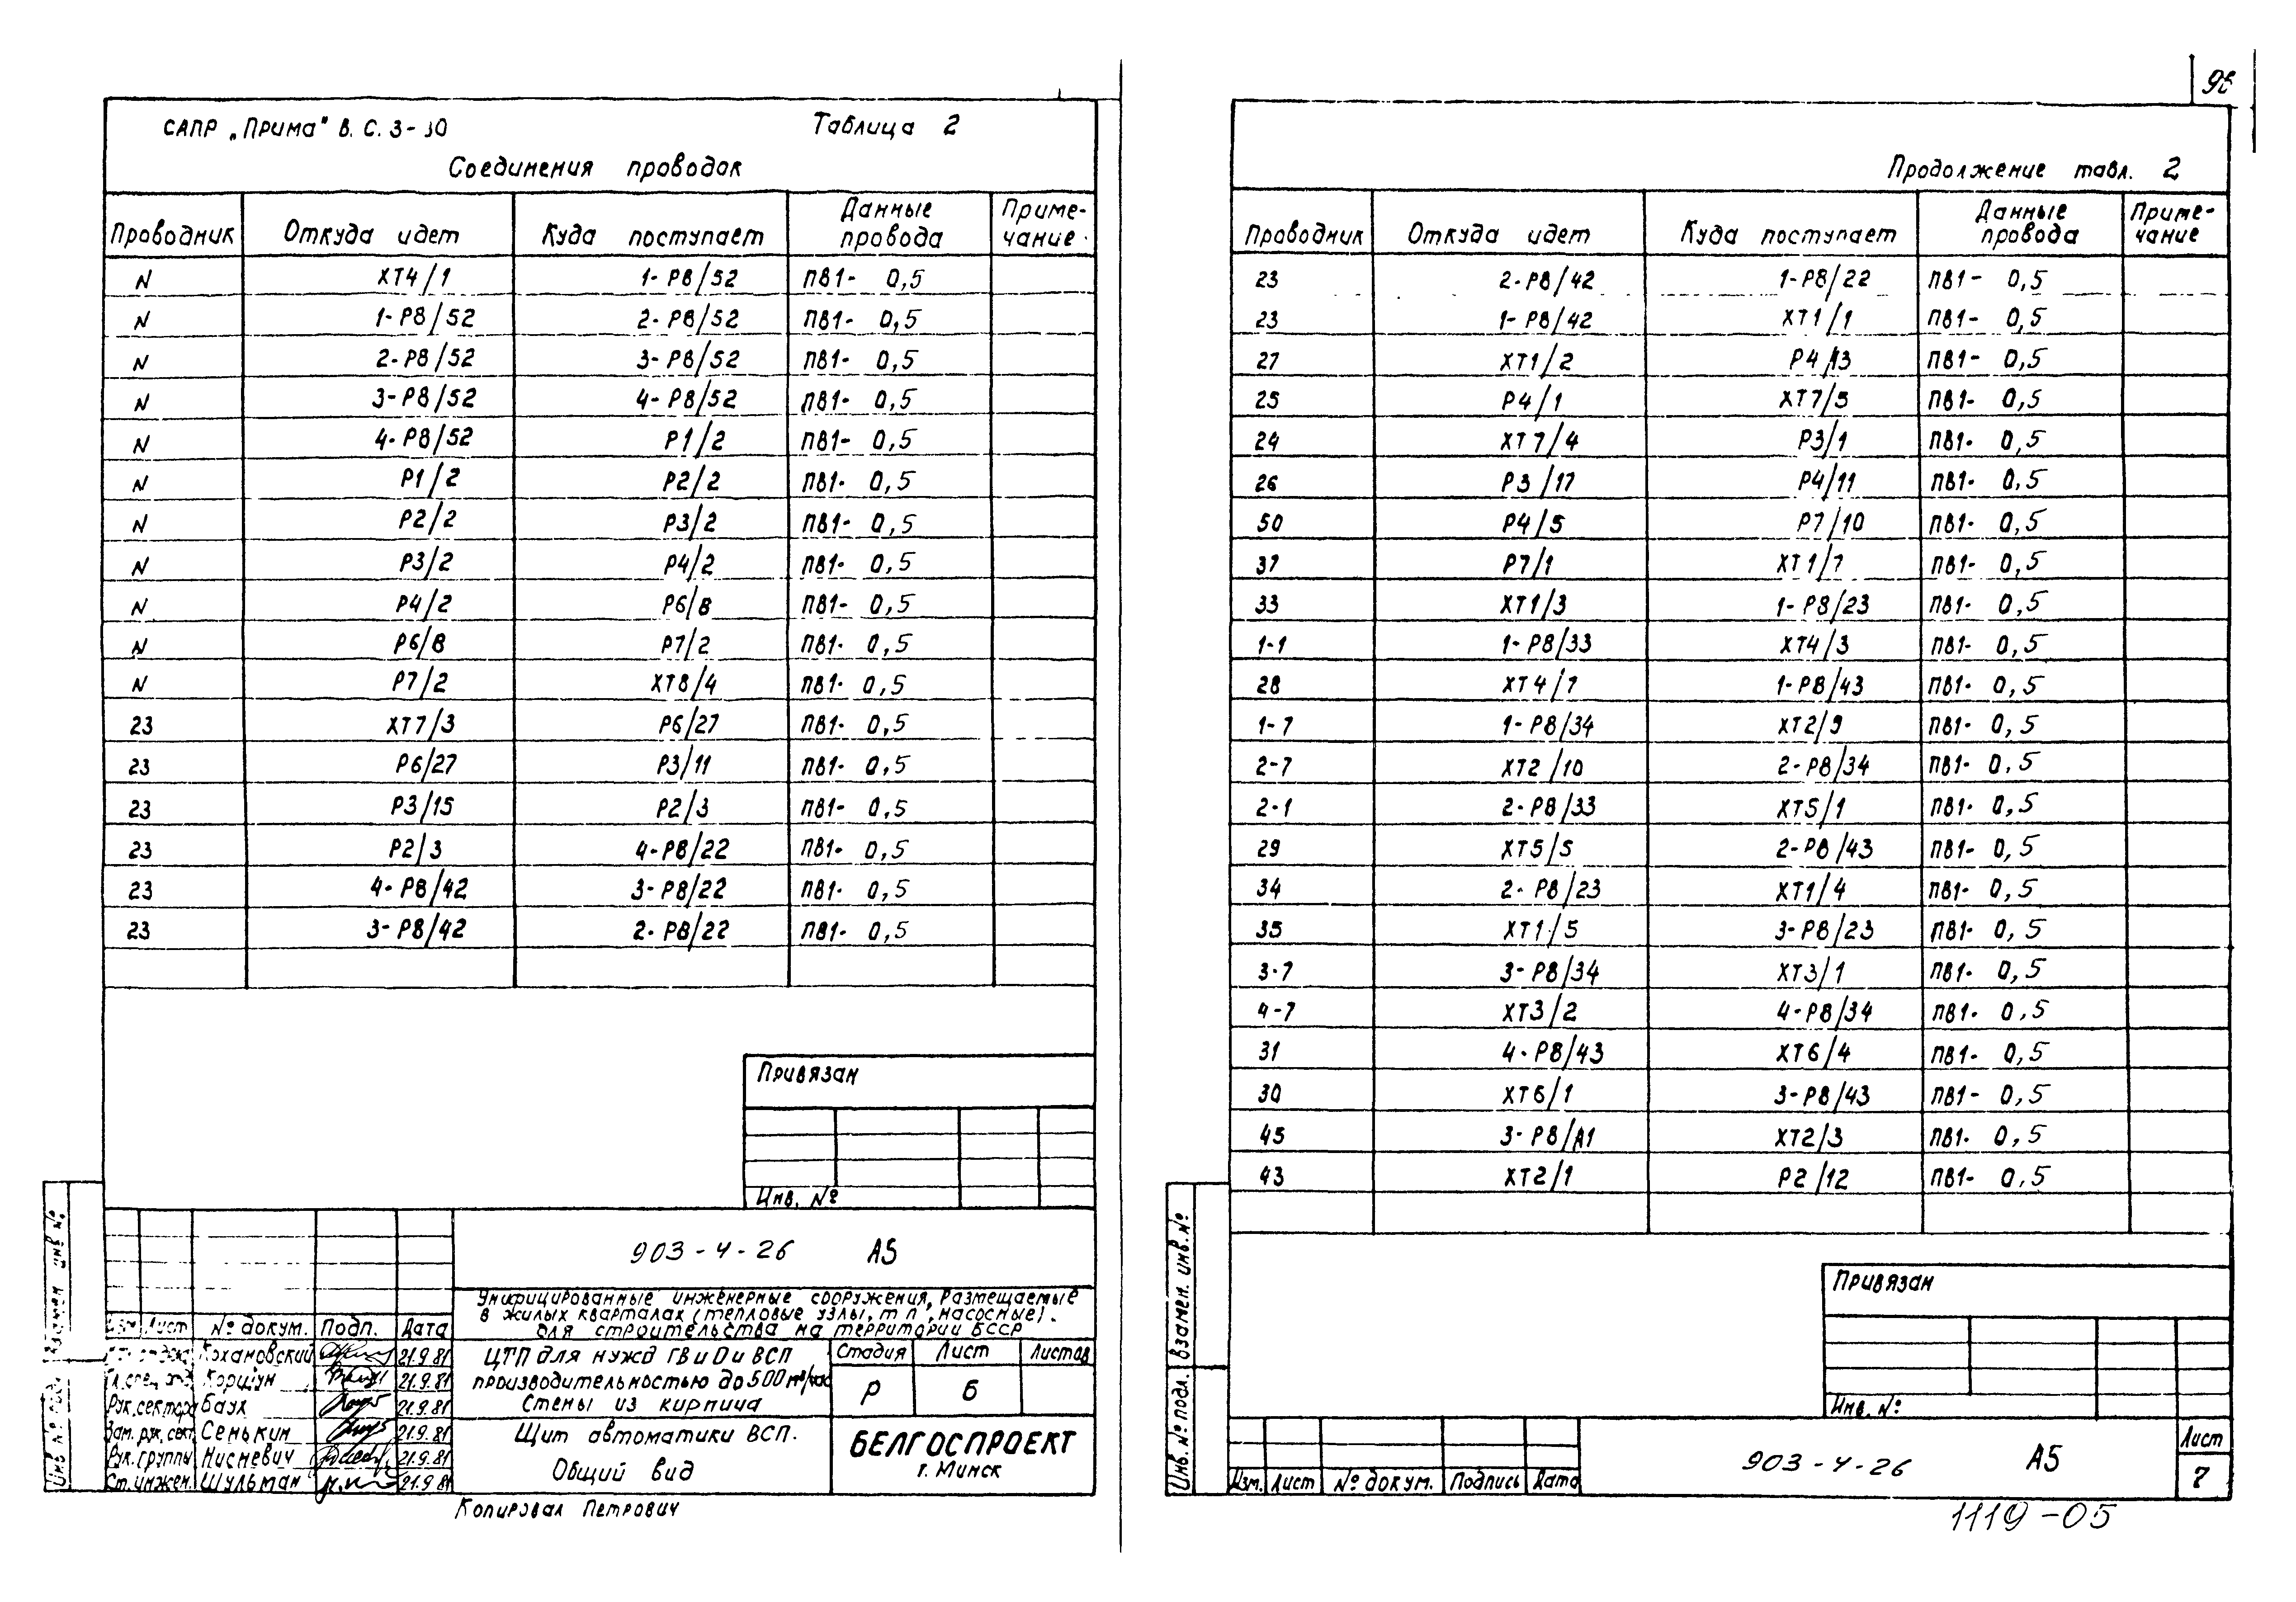 САПР „Прима" В. С. 3-30 Таблица 2
Соединения проводок
Проводник Откуда идет Куда поступает Данные провода Приме-чание
N ХТ4/1 1-Р8/52 ПВ1- 0,5
N 1-Р8/52 2-Р8/52 ПВ1- 0,5
N 2-Р8/52 3-Р8/52 ПВ1- 0,5
N 3-Р8/52 4-Р8/52 ПВ1- 0,5
N 4-Р8/52 Р1/2 ПВ1- 0,5
N Р1/2 Р2/2 ПВ1- 0,5
N Р2/2 Р3/2 ПВ1- 0,5
N Р3/2 Р4/2 ПВ1- 0,5
N Р4/2 Р6/8 ПВ1- 0,5
N Р6/8 Р7/2 ПВ1- 0,5
N Р7/2 ХТ8/4 ПВ1- 0,5
23 ХТ7/3 Р6/27 ПВ1- 0,5
23 Р6/27 Р3/11 ПВ1- 0,5
23 Р3/15 Р2/3 ПВ1- 0,5
23 Р2/3 4-Р8/22 ПВ1- 0,5
23 4-Р8/42 3-Р8/22 ПВ1- 0,5
23 3-Р8/42 2-Р8/22 ПВ1- 0,5
Привязан
Инв. №
903-4-26 А5
Унифицированные инженерные сооружения, размещаемые
в жилых кварталах (тепловые узлы, т п, насосные).
для строительства на территории БССР
Изм Лист № докум. Подп. Дата
Кохановский 21.9.81
Коршун 21.9.81
Рук.сектора Баух 21.9.81
Зам. рук. сект. Сенькин 21.9.81
Рук. группы Нисневич 21.9.81
Ст. инжен. Шульман 21.9.81
ЦТП для нужд ГВ и О и ВСП
производительностью до 500 м³/час
Стены из кирпича
Стадия Лист Листов
Р 6
Щит автоматики ВСП.
Общий вид
БЕЛГОСПРОЕКТ
г. Минск
Копировал Петрович
Взамен инв №
Инв № подл.
Продолжение табл. 2
Проводник Откуда идет Куда поступает Данные провода Приме-чание
23 2-Р8/42 1-Р8/22 ПВ1- 0,5
23 1-Р8/42 ХТ1/1 ПВ1- 0,5
27 ХТ1/2 Р4/13 ПВ1- 0,5
25 Р4/1 ХТ7/5 ПВ1- 0,5
24 ХТ7/4 Р3/1 ПВ1- 0,5
26 Р3/17 Р4/11 ПВ1- 0,5
50 Р4/5 Р7/10 ПВ1- 0,5
37 Р7/1 ХТ1/7 ПВ1- 0,5
33 ХТ1/3 1-Р8/23 ПВ1- 0,5
1-1 1-Р8/33 ХТ4/3 ПВ1- 0,5
28 ХТ4/7 1-Р8/43 ПВ1- 0,5
1-7 1-Р8/34 ХТ2/9 ПВ1- 0,5
2-7 ХТ2/10 2-Р8/34 ПВ1- 0,5
2-1 2-Р8/33 ХТ5/1 ПВ1- 0,5
29 ХТ5/5 2-Р8/43 ПВ1- 0,5
34 2-Р8/23 ХТ1/4 ПВ1- 0,5
35 ХТ1/5 3-Р8/23 ПВ1- 0,5
3-7 3-Р8/34 ХТ3/1 ПВ1- 0,5
4-7 ХТ3/2 4-Р8/34 ПВ1- 0,5
31 4-Р8/43 ХТ6/4 ПВ1- 0,5
30 ХТ6/1 3-Р8/43 ПВ1- 0,5
45 3-Р8/А1 ХТ2/3 ПВ1- 0,5
43 ХТ2/1 Р2/12 ПВ1- 0,5
Привязан
Инв. №
Изм. Лист № докум. Подпись Дата
903-4-26 А5
Лист
7
Взамен. инв. №
Инв. № подл.
1119-05